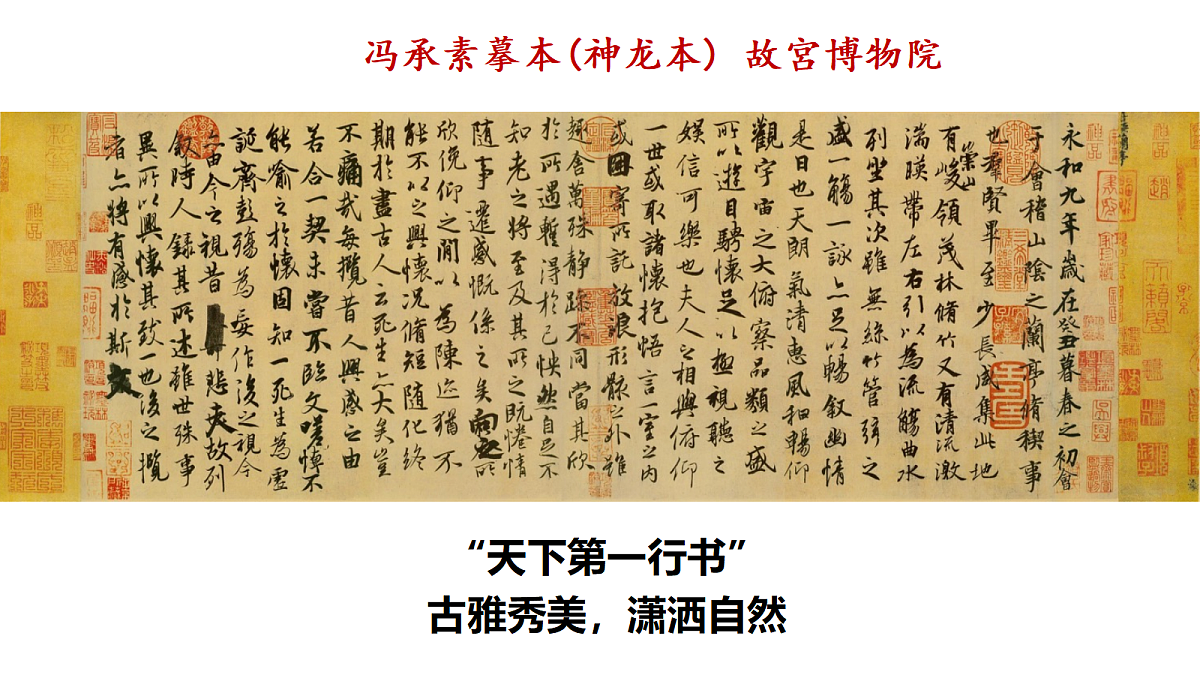 冯承素摹本(神龙本) 故宫博物院
永和九年歲在癸丑暮春之初會
于會稽山陰之蘭亭脩稧事
也羣賢畢至少長咸集此地
有崇山峻領茂林脩竹又有清流激
湍暎帶左右引以為流觴曲水
列坐其次雖無絲竹管弦之
盛一觴一詠亦足以暢叙幽情
是日也天朗氣清惠風和暢仰
觀宇宙之大俯察品類之盛
所以遊目騁懷足以極視聽之
娛信可樂也夫人之相與俯仰
一世或取諸懷抱悟言一室之內
或因寄所託放浪形骸之外雖
趣舍萬殊靜躁不同當其欣
於所遇蹔得於己怏然自足不
知老之將至及其所之既惓情
隨事遷感慨係之矣向之所
欣俛仰之閒以為陳迹猶不
能不以之興懷況脩短隨化終
期於盡古人云死生亦大矣豈
不痛哉每攬昔人興感之由
若合一契未嘗不臨文嗟悼不
能喻之於懷固知一死生為虛
誕齊彭殤為妄作後之視今
亦由今之視昔 悲夫故列
叙時人錄其所述雖世殊事
異所以興懷其致一也後之攬
者亦將有感於斯文
“天下第一行书”
古雅秀美，潇洒自然